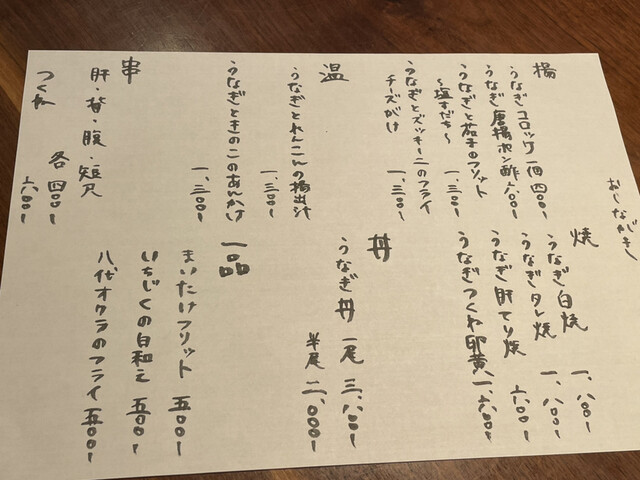 おしながき
揚
うなぎコロッケ一個 四〇〇-
うなぎ唐揚ポン酢 六〇〇-
うなぎと茄子のフリット
～塩すだち～ 一、三〇〇-
うなぎとズッキーニのフライ
チーズがけ 一、三〇〇-
温
うなぎとれんこんの揚出汁
一、三〇〇-
うなぎときのこのあんかけ
一、三〇〇-
串
肝・背・腹・短尺
各 四〇〇-
つくね 六〇〇-
焼
うなぎ白焼 一、八〇〇-
うなぎタレ焼 一、八〇〇-
うなぎ肝てり焼 六〇〇-
うなぎつくね卵黄 一、六〇〇-
丼
うなぎ丼 一尾 三、八〇〇-
半尾 二、〇〇〇-
一品
まいたけフリット 五〇〇-
いちじくの白和え 五〇〇-
八代オクラのフライ 五〇〇-